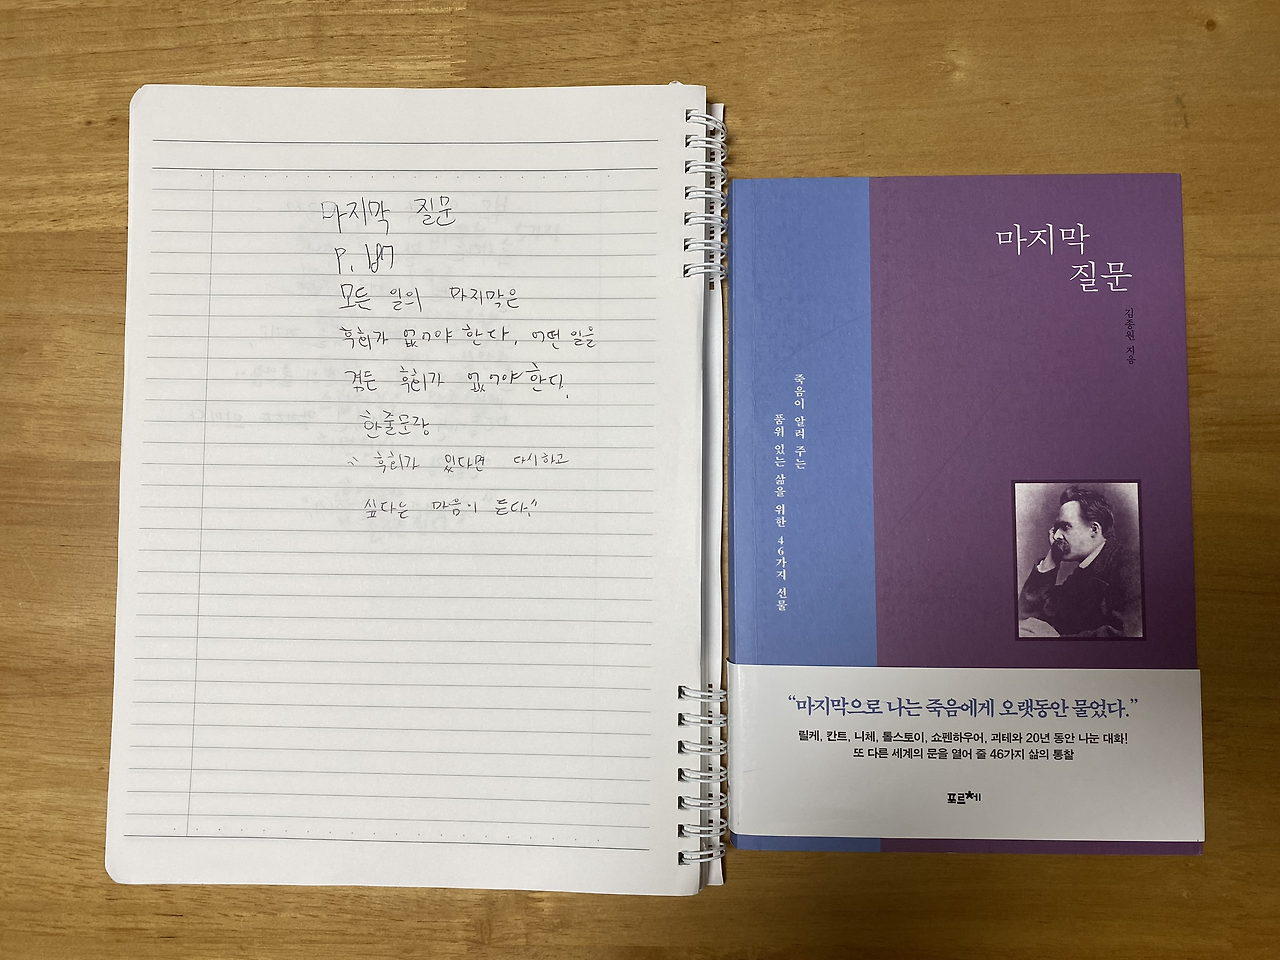 마지막 질문
P.
모든 일의 마지막은
후회가 없어야 한다. 어떤 일을
겪든 후회가 없어야 한다.
한줄문장
"후회가 있다면 다시하고
싶다는 마음이 든다."
마지막
질문
김종원 지음
죽음이 알려 주는
품위 있는 삶을 위한 46가지 선물
“마지막으로 나는 죽음에게 오랫동안 물었다.”
릴케, 칸트, 니체, 톨스토이, 쇼펜하우어, 괴테와 20년 동안 나눈 대화!
또 다른 세계의 문을 열어 줄 46가지 삶의 통찰
포르체